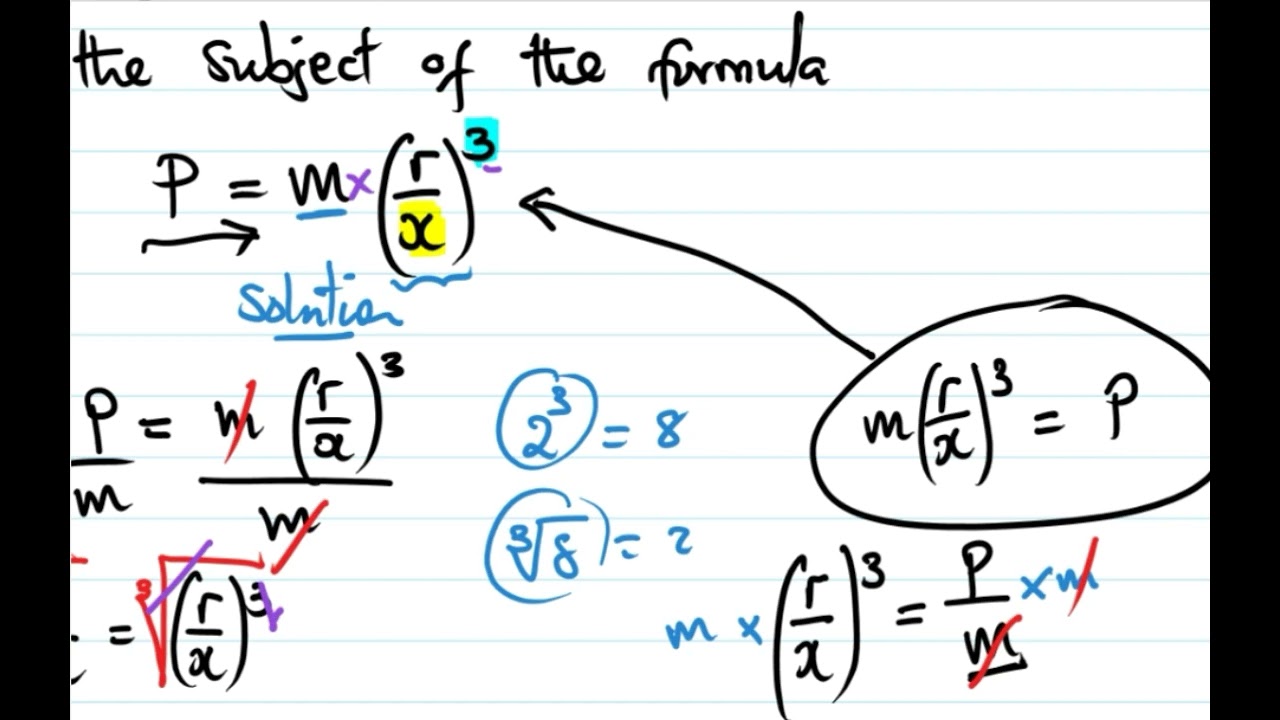 the subject of the formula
P = m × (r/x)³
solution
P/m = m (r/x)³ / m
2³ = 8
m(r/x)³ = P
³√8 = 2
= ³√(r/x)³
m × (r/x)³ = P/m × m